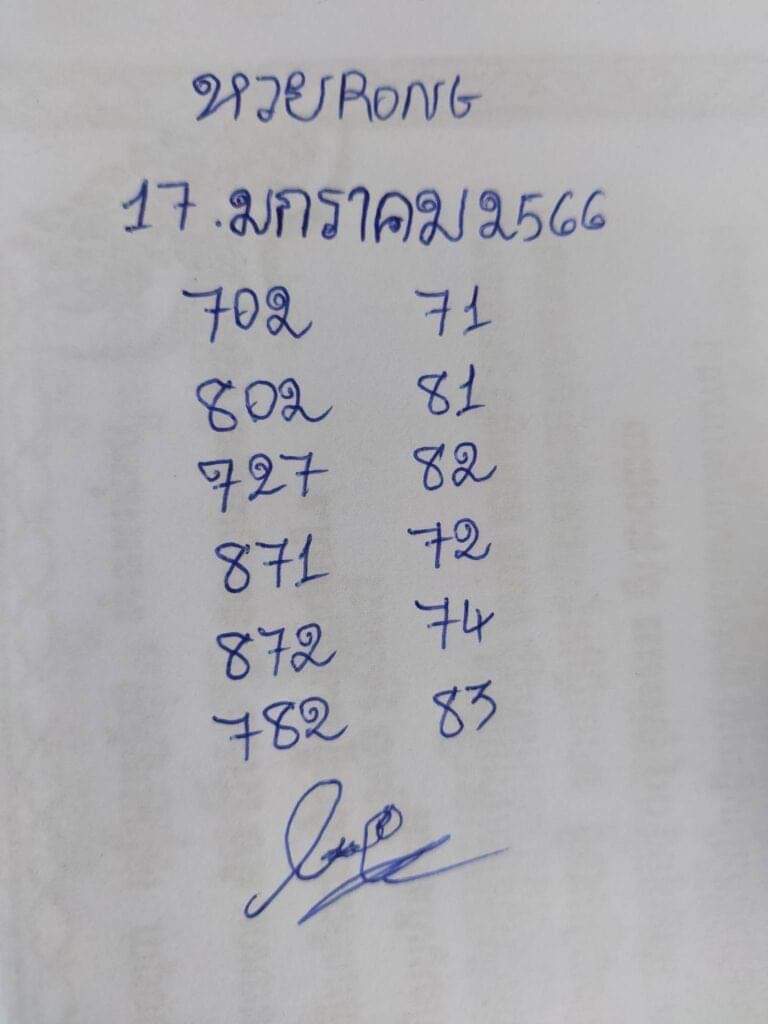 หวยRONG
17.มกราคม2566
702 71
802 81
727 82
871 72
872 74
782 83